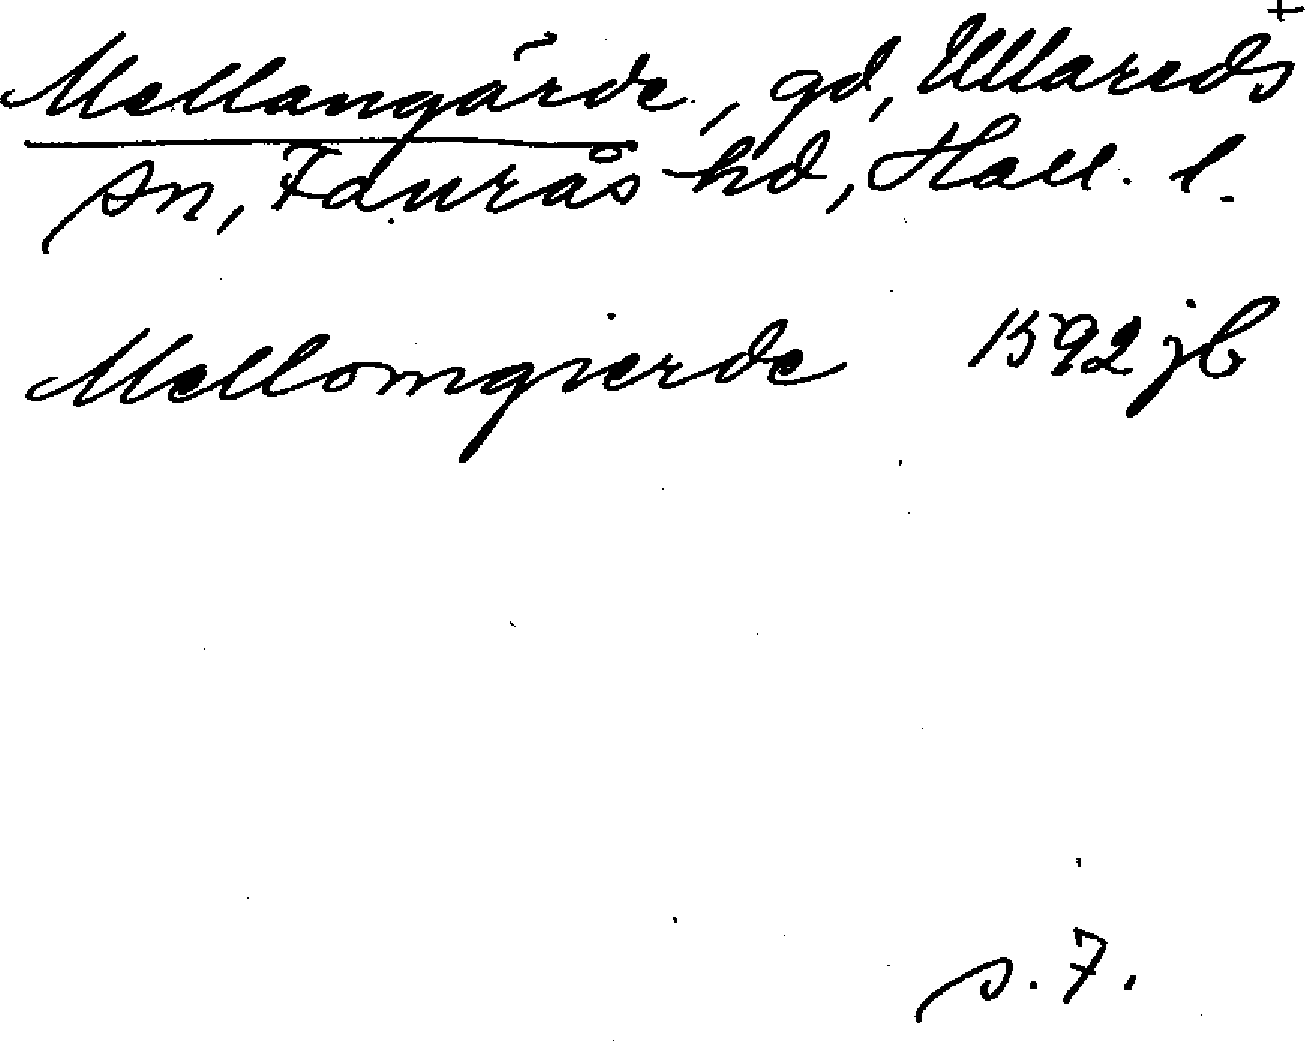 +
Mellangärde, gd, Ullareds
sn, Faurås hd, Hall. l.
Mellomgierde 1592 jb
s. 7.